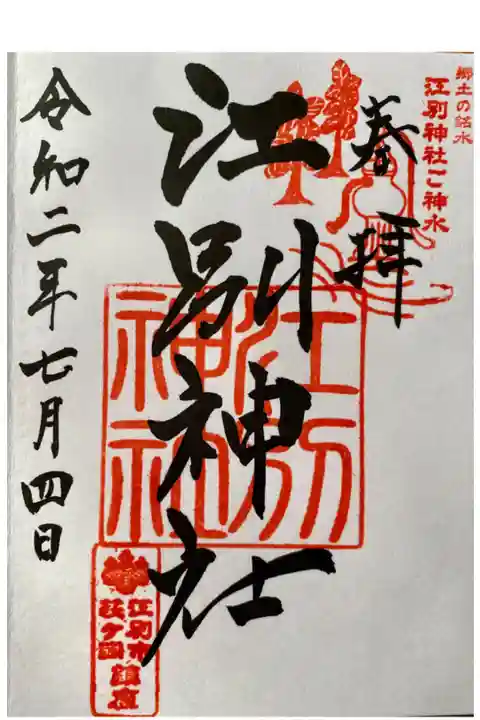 郷土の銘水
江別神社ご神水
奉拝
江別神社
江別神社
令和二年七月四日
江別市
萩ヶ岡
鎮座